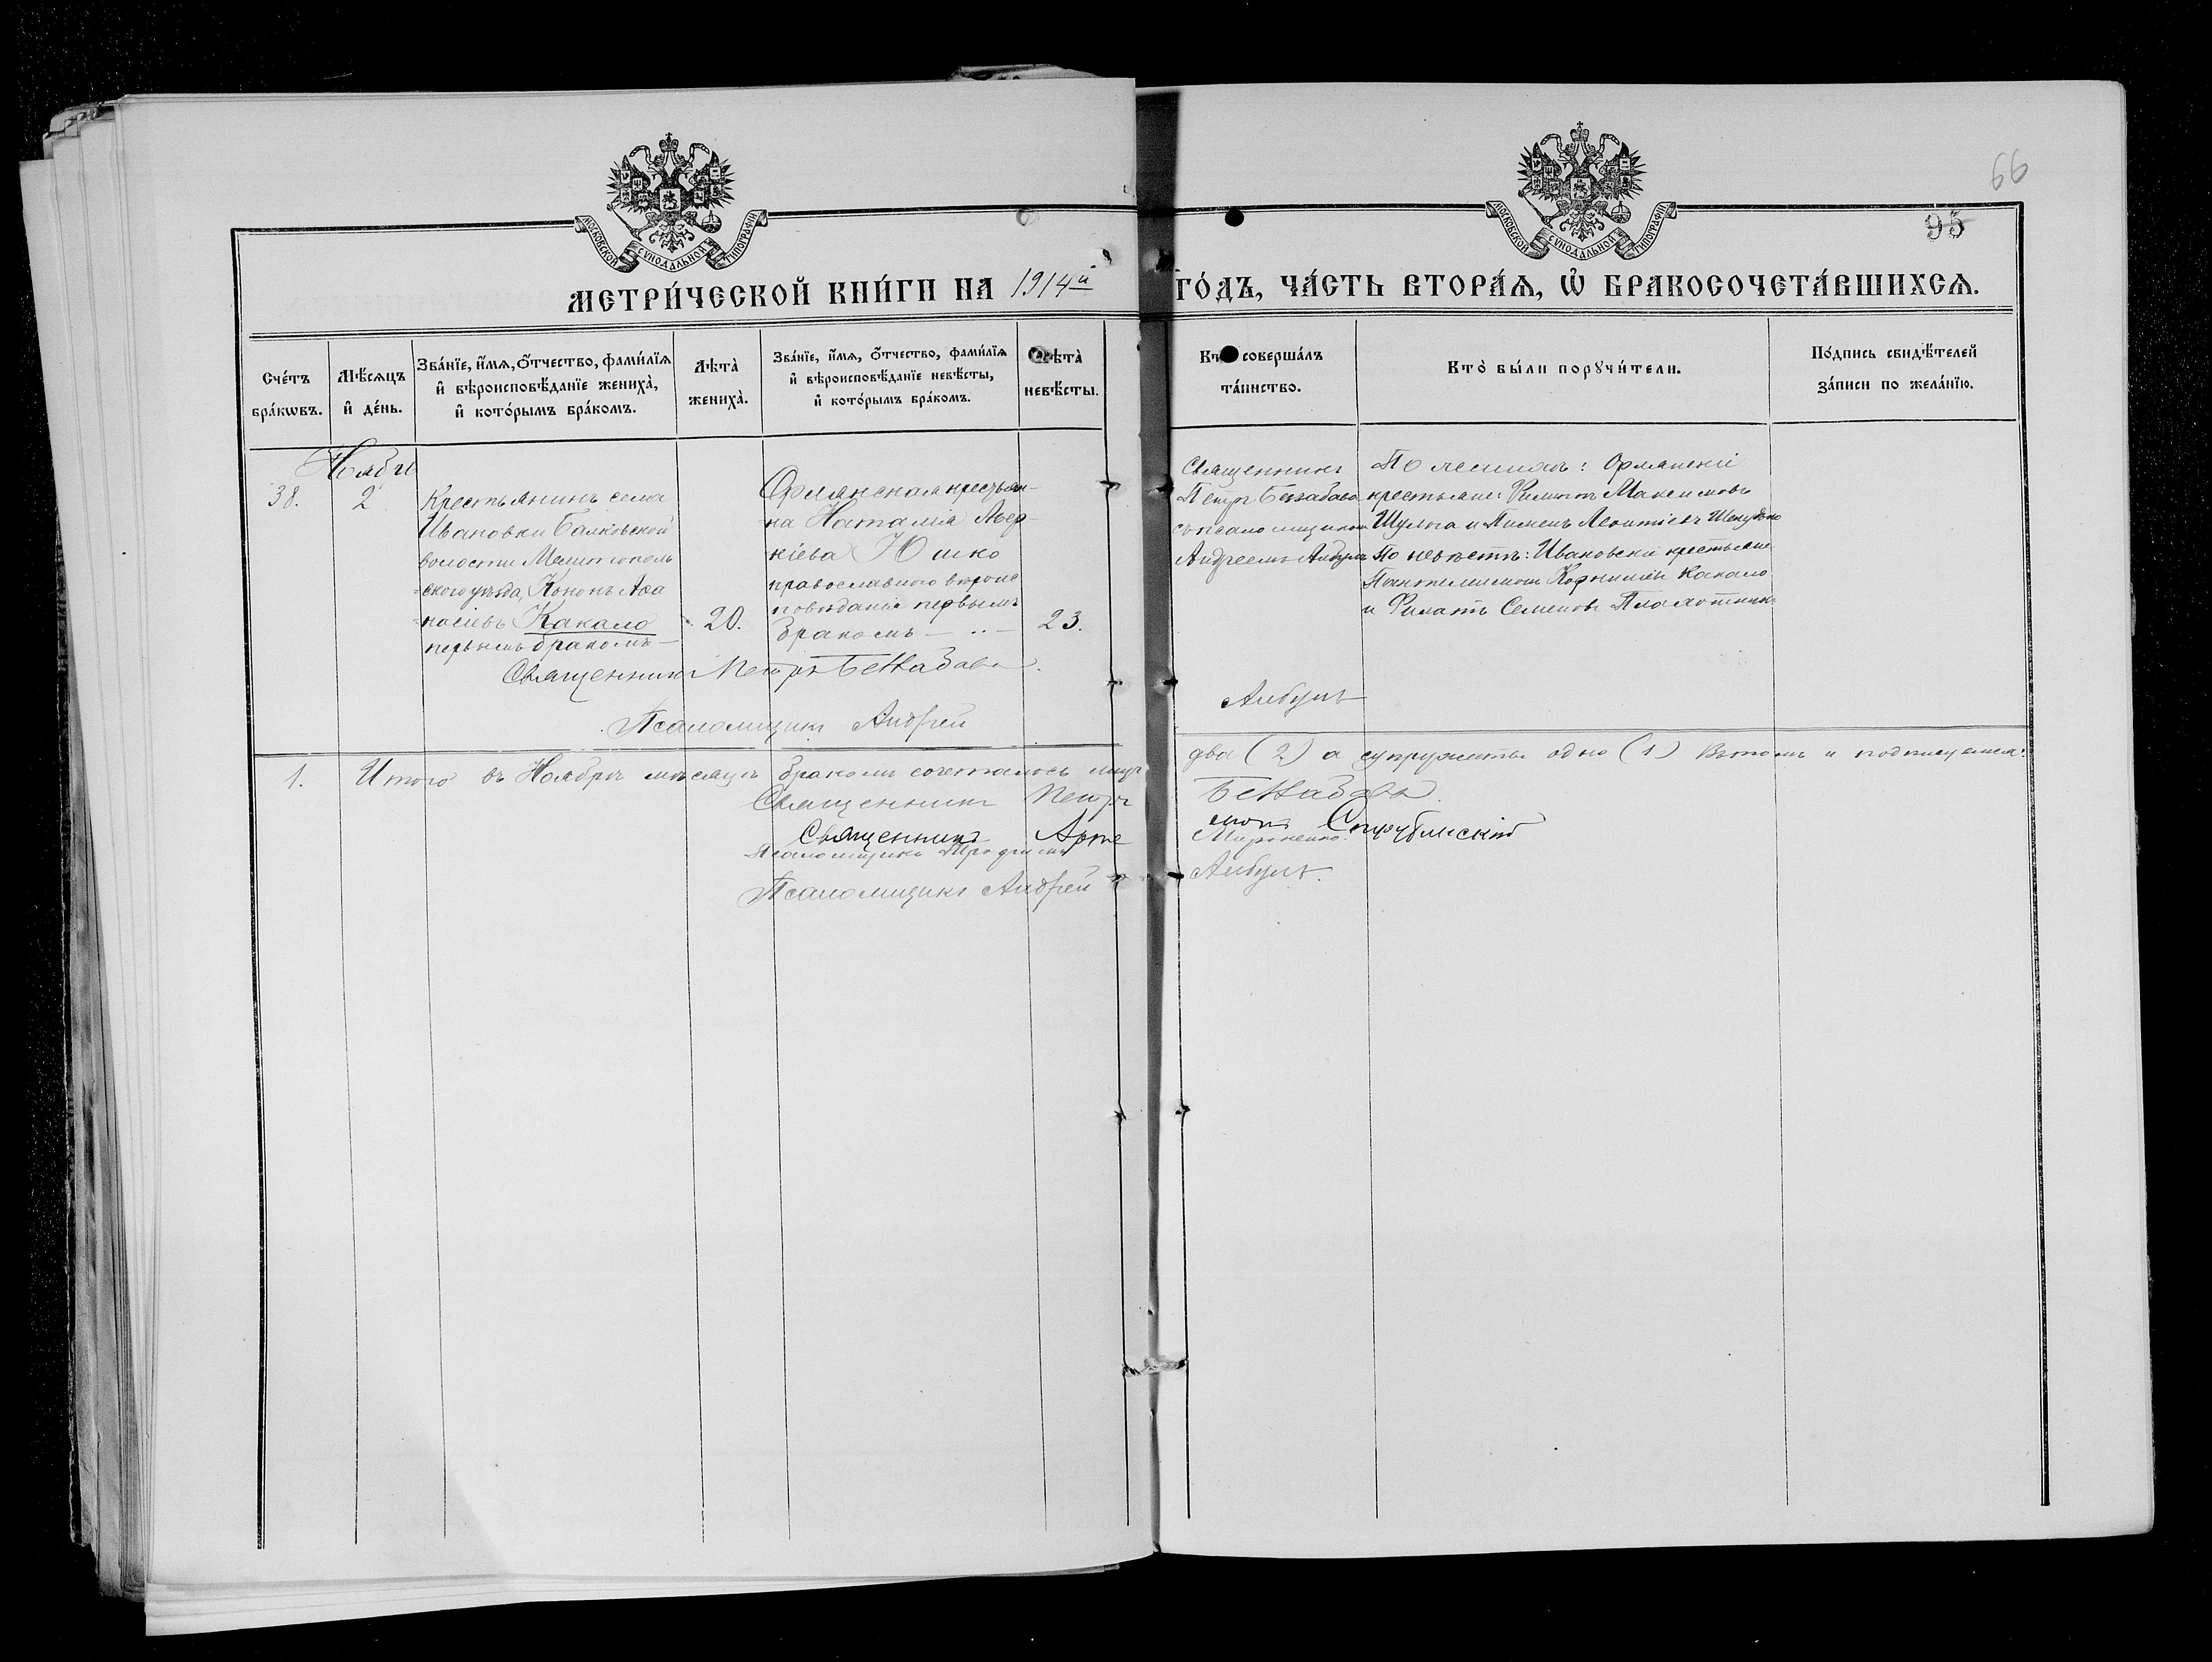 66
95
МОСКОВСКОЙ СѴНОДАЛЬНОЙ ТИПОГРАФІИ
МОСКОВСКОЙ СѴНОДАЛЬНОЙ ТИПОГРАФІИ
МЕТРИ́ЧЕСКОЙ КНИ́ГИ НА 1914й ГО́ДЪ, ЧА́СТЬ ВТОРА́Ѧ, Ѽ БРАКОСОЧЕТА́ВШИХСѦ.
Сче́тъ бра́кѡвъ.
Мѣ́сѧцъ и҆ де́нь.
Зва́нїе, и҆́мѧ, ѻ҆́тчество, фами́лїѧ и҆ вѣроисповѣ́данїе жениха̀, и҆ кото́рымъ бра́комъ.
Лѣта̀ жениха̀.
Зва́нїе, и҆́мѧ, ѻ҆́тчество, фами́лїѧ и҆ вѣроисповѣ́данїе невѣ́сты, и҆ кото́рымъ бра́комъ.
Лѣта̀ невѣ́сты.
Кто̀ соверша́лъ та́инство.
Кто̀ бы́ли порꙋчи́тели.
По́дпись свидѣ́телей за́писи по жела́нїю.
Ноябрь
38.
2
Крестьянинъ села
Ивановки Балковской
волости Мелитополь
скаго уѣзда, Кононъ Афа
насіевъ Какало
первымъ бракомъ
20.
Орлянская крестьян-
ка Наталія Авер-
кіева Юшко
православнаго вѣроис
повѣданія первымъ
бракомъ
23.
Священникъ
Петръ Беззабава
съ псаломщикомъ
Андреемъ
По женихѣ: Орлянскіе
крестьяне: Филиппъ Максимовъ
Шульга и Пименъ Леонтіевъ
По невѣстѣ: Ивановскіе крестьяне
Пантелеимонъ Корниліевъ Какало
и Филиппъ Семеновъ
Священникъ Петръ Беззабава.
Псаломщикъ Андрей Албулъ
1. Итого въ Ноябрѣ мѣсяцѣ бракомъ сочеталось лицъ два (2) а супружествъ одно (1) Въ томъ и подписуемся:
Священникъ Петръ Беззабава.
Священникъ Струблискій
Псаломщикъ Трофимъ Мироненко
Псаломщикъ Андрей Албулъ.